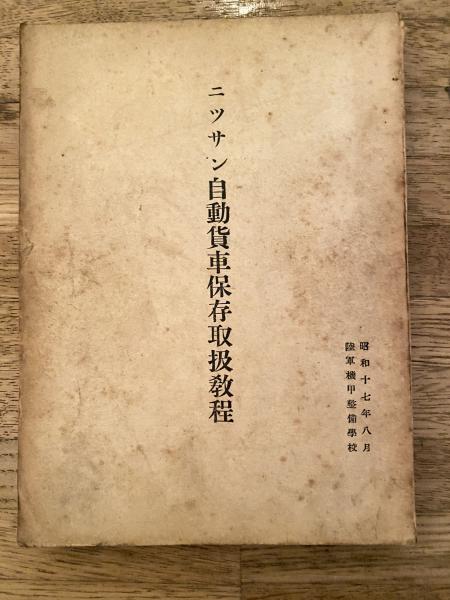 ニツサン自動貨車保存取扱教程
昭和十七年八月
陸軍機甲整備學校